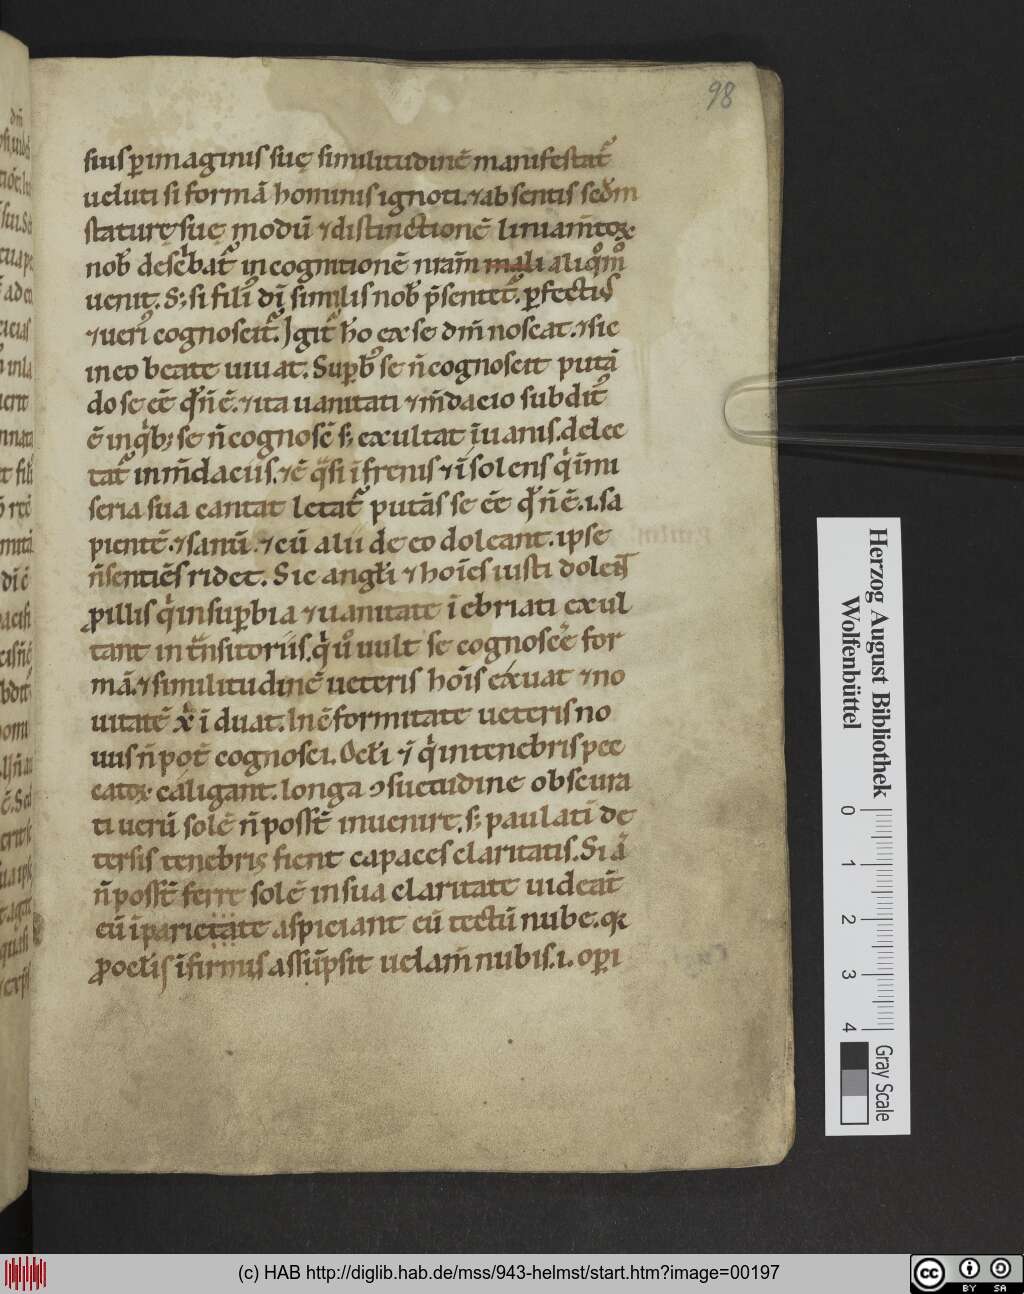 98
siuspimaginis suę similitudinē manifestat᷑
ueluti si formā hominis ignoti. ⁊absentis sedm̄
staturę suę modū ⁊distinctionē liniam̄toꝝ
nob̄ desc̄bat᷑ in cognitionē nr̄am̄ mali aliqͦmͦ
uenit. S; si filiˀ di᷑ similis nob̄ p̄sentet᷑. ꝑfectiˀ
⁊ueriˀ cognoscit᷑. Igit᷑ hō ex se dm̄ noscat. ⁊sic
in eo beate uiuat. Suꝑbˀ se n̄ cognoscit putā
do se eē̄ qḋ n̄ ē. ⁊ita uanitati ⁊m̄dacio subditˀ
ē inqⁱb; se n̄ cognoscē s; exultat ī uanis. delec
tat᷑ in m̄daciis. ⁊ē qͣsi īfrenis ⁊ īsolens qⁱ īmi
seria sua cantat letat᷑ putās se eē̄ qḋ n̄ ē. i. sa
pientē. ⁊sanū. ⁊cū alii de eo doleant. ipse
n̄ sentiēs ridet. Sic angl̄i ⁊hoīes iusti dolent
ꝓ illis qⁱ in suꝑbia ⁊uanitate īebriati exul
tant in tn̄sitoriis. qⁱ uͦ uult se cognoscē for
mā. ⁊similitudinē ueteris hoīs exuat ⁊no
uitatē xⁱ īduat. In ēformitate ueteris no
uus n̄ pot̄ cognosci. Ocl̄i ⁊ī qⁱ in tenebris pec
catoꝝ caligant. longa ꝯsuetudine obscura
ti uerū solē n̄ possēt inuenire. s; paulatī de
tersis tenebris fient capaces claritatis. Si ā
n̄ possēt ferre solē in sua claritate uideāt
cū īparietate aspiciant cū tectū nube. qꝛ
ꝓ ocl̄is īfirmis assūpsit uelam̄ nubis. i. oꝑi
Herzog August Bibliothek
Wolfenbüttel
0 1 2 3 4
Gray Scale
(c) HAB http://diglib.hab.de/mss/943-helmst/start.htm?image=00197
cc BY SA